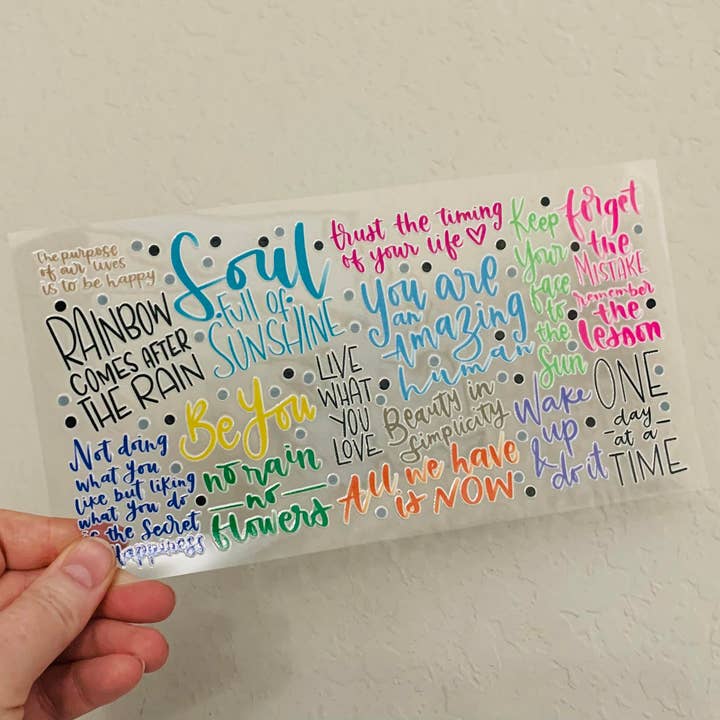 the purpose
of our lives
is to be happy
Soul
full of
SUNSHINE
trust the timing
of your life
Keep
Your
face
to
the
Sun
forget
the
MISTAKE
remember
the
lesson
RAINBOW
COMES AFTER
THE RAIN
You are
an
Amazing
human
Be You
LIVE
WHAT
YOU
LOVE
Beauty in
simplicity
Wake
up
& do it
ONE
-day-
at a
TIME
Not doing
what You
like but liking
what You do
the Secret
Happiness
no rain
no
flowers
All we have
is NOW